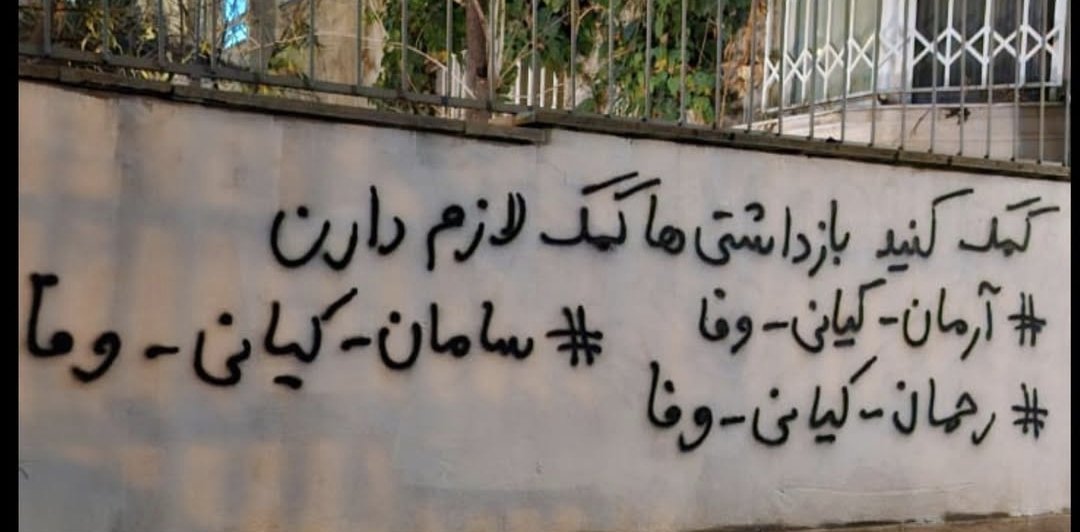 کمک کنید بازداشتی ها کمک لازم دارن
# آرمان - کیانی - وفا
# سامان - کیانی - وفا
# رحمان - کیانی - وفا